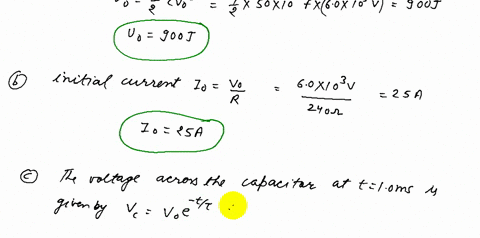 U₀ = ½ CV₀² = ½ × 50×10 F×(6.0×10³V) = 900J
U₀ = 900J
(b) initial current I₀ = V₀/R = 6.0×10³V/240Ω = 25A
I₀ = 25A
(c) The voltage across the capacitor at t=1.0ms is
given by Vc = V₀e^-t/τ